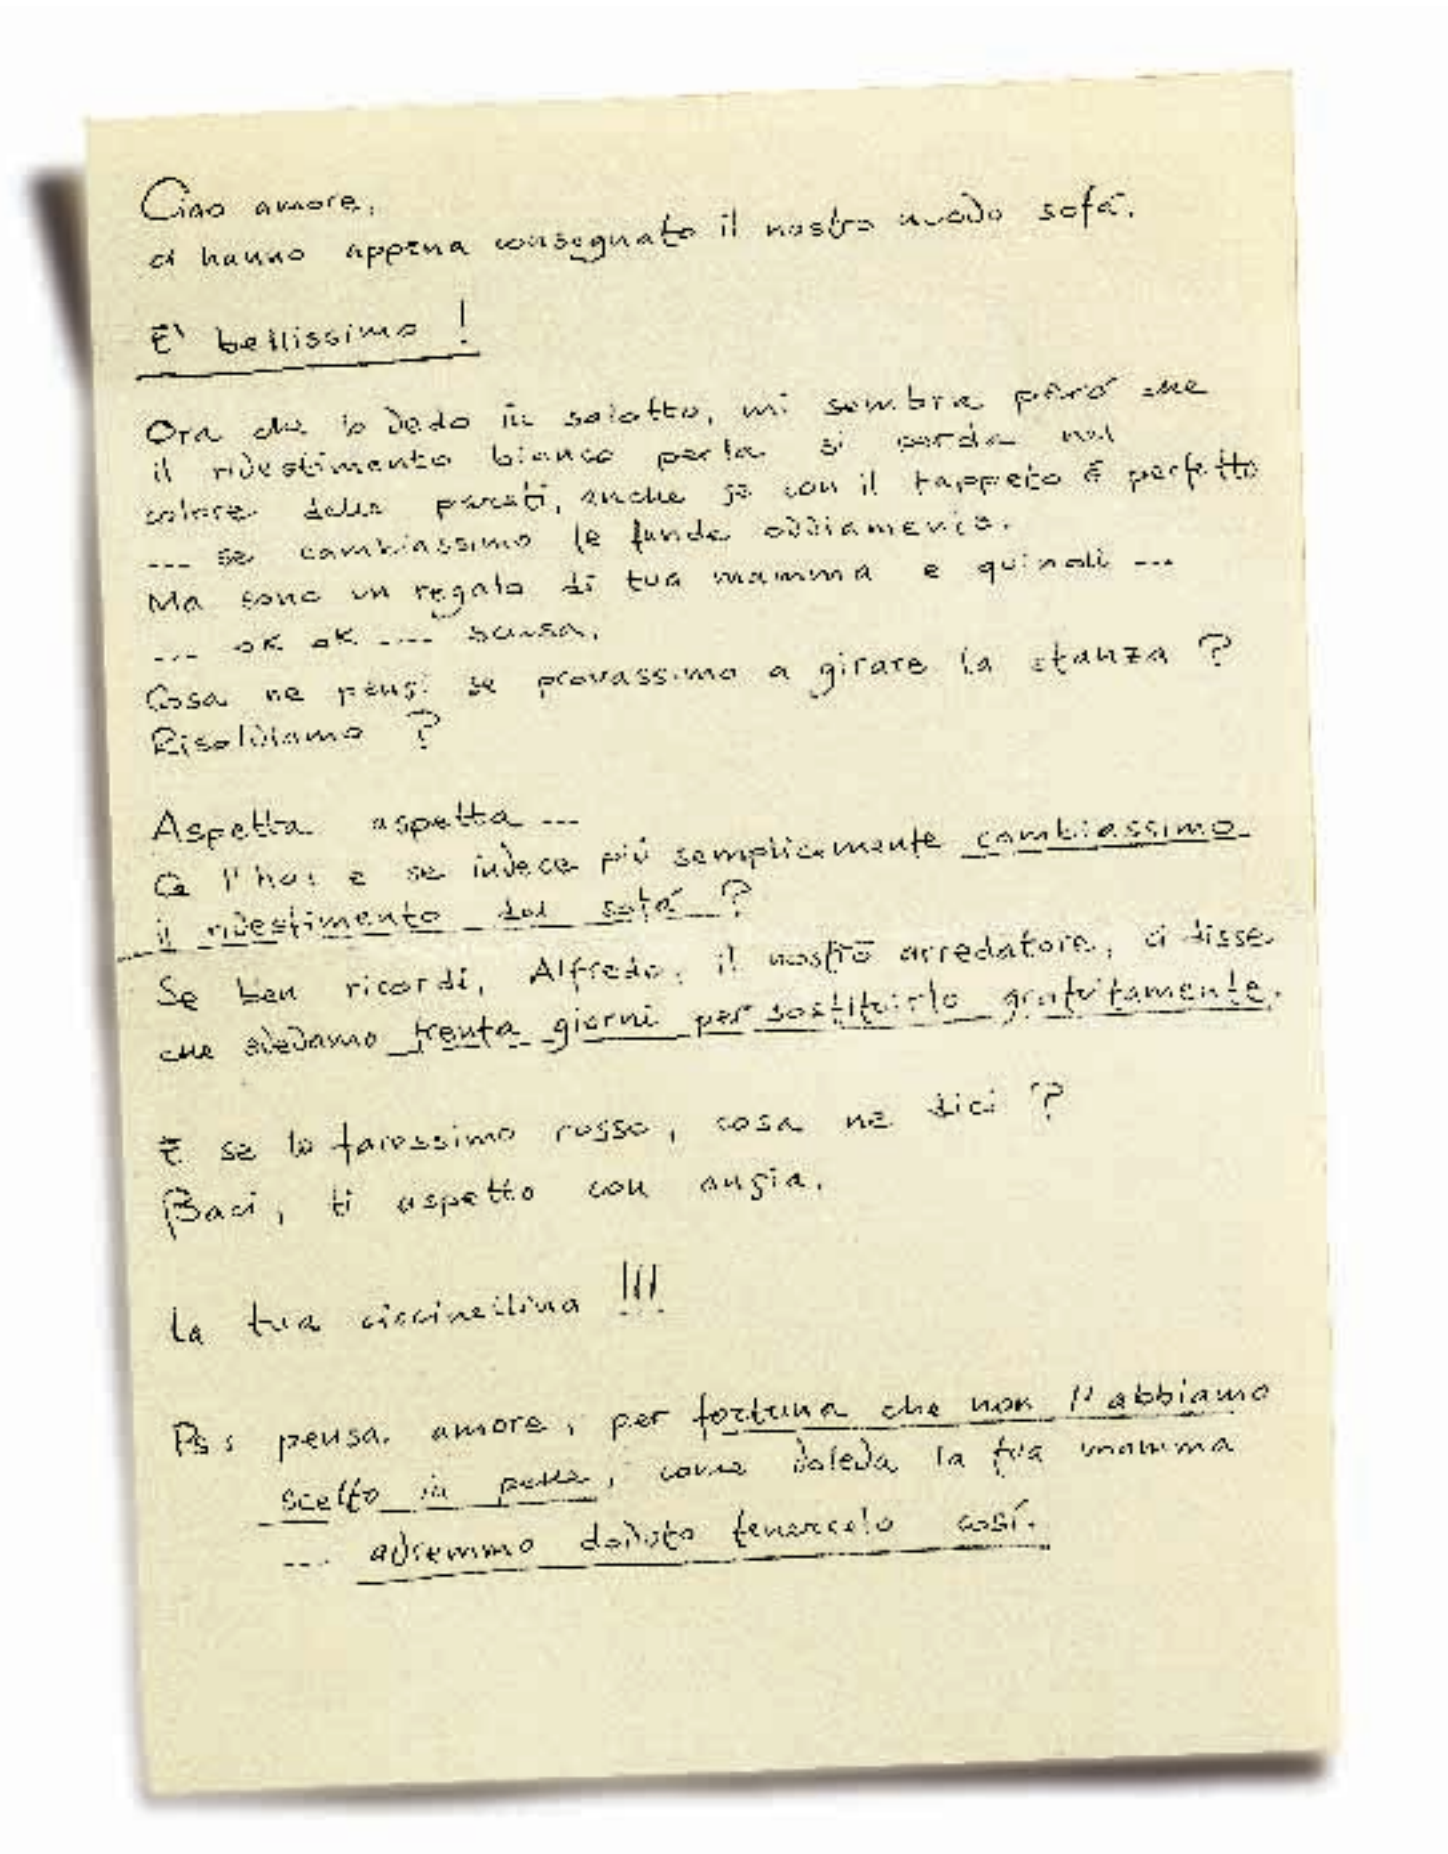 Ciao amore,
ci hanno appena consegnato il nostro nuovo sofá.
E' bellissimo !
Ora che lo vedo in salotto, mi sembra peró che
il rivestimento bianco perla si perda nel
colore delle pareti, anche se con il tappeto é perfetto
... se cambiassimo le fundé ovviamente.
Ma sono un regalo di tua mamma e quindi ...
... ok ok .... scusa.
Cosa ne pensi se provassimo a girare la stanza ?
Risolviamo ?
Aspetta aspetta ...
Ce l'hai e se invece piú semplicemente cambiassimo
il rivestimento del sofá ?
Se ben ricordi, Alfredo, il nostro arredatore, ci disse
che avevamo trenta giorni per sostituirlo gratuitamente.
E se lo facessimo rosso, cosa ne dici ?
Baci, ti aspetto con ansia.
la tua ciccinellina !!!
Ps: pensa amore, per fortuna che non l'abbiamo
scelto in pelle, come voleva la tua mamma
.... avremmo dovuto tenercelo cosí.